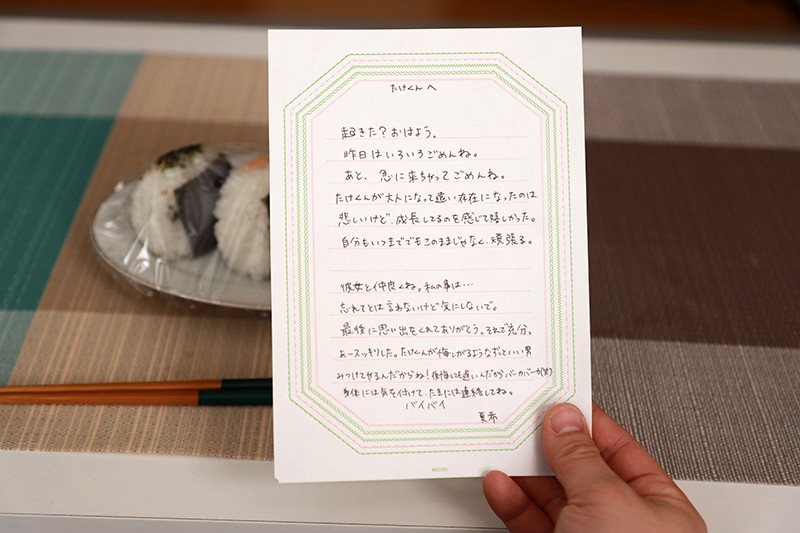 たけくんへ
起きた？おはよう。
昨日はいろいろごめんね。
あと、急に来ちゃってごめんね。
たけくんが大人になって遠い存在になったのは
悲しいけど、成長してるのを感じて嬉しかった。
自分もいつまでもこのままじゃなく、頑張る。
彼女と仲良くね。私の事は…
忘れてとは言わないけど気にしないで。
最後に思い出をくれてありがとう。それで充分。
あースッキリした。たけくんが悔しがるようなずっといい男
みつけてやるんだからね！後悔しても遅いんだからバーカバーカ(笑)
身体には気を付けて、たまには連絡してね。
バイバイ
夏希
MIDORI